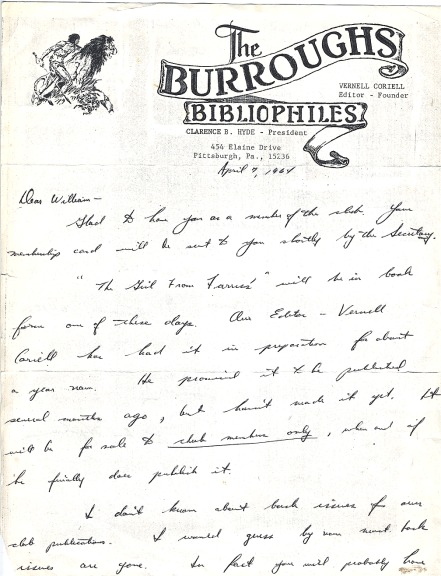 The
BURROUGHS
BIBLIOPHILES
VERNELL CORIELL
Editor - Founder
CLARENCE B. HYDE - President
454 Elaine Drive
Pittsburgh, Pa., 15236
April 7, 1964
Dear William—
Glad to have you as a member of the club. Your
membership card will be sent to you shortly by the Secretary.
"The Girl From Farris's" will be in book
form one of these days. Our Editor - Vernell
Coriell has had it in preparation for about
a year now. He promised it to be published
several months ago, but hasn't made it yet. It
will be for sale to club members only, when and if
he finally does publish it.
I don't know about back issues of our
club publication. I would guess by now most back
issues are gone. In fact you will probably have